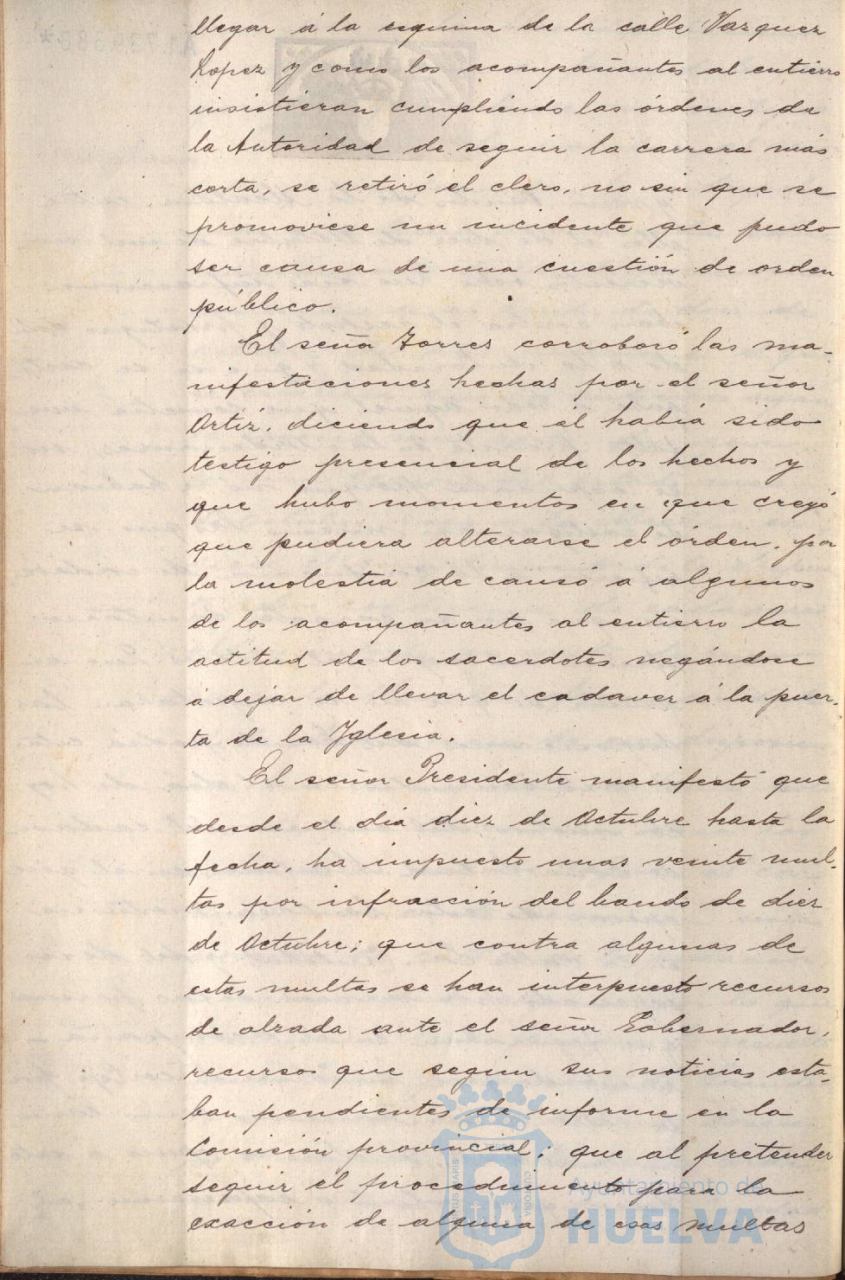 llegar á la esquina de la calle Vazquez
Lopez y como los acompañantes al entierro
insistieran cumpliendo las órdenes de
la Autoridad de seguir la carrera más
corta, se retiró el clero, no sin que se
promoviese un incidente que pudo
ser causa de una cuestión de orden
público.
El señor Torres corroboró las ma-
nifestaciones hechas por el señor
Ortiz, diciendo que él habia sido
testigo presencial de los hechos y
que hubo momentos en que creyó
que pudiera alterarse el órden, por
la molestia de causó á algunos
de los acompañantes al entierro la
actitud de los sacerdotes negándose
á dejar de llevar el cadaver á la puer-
ta de la Yglesia.
El señor Presidente manifestó que
desde el dia diez de Octubre hasta la
fecha, ha impuesto unas veinte mul-
tas por infracción del bando de diez
de Octubre; que contra algunas de
estas multas se han interpuesto recursos
de alzada ante el señor Gobernador,
recursos que segun sus noticias esta-
ban pendientes de informe en la
Comisión provincial; que al pretender
seguir el procedimiento para la
exacción de alguna de esas multas
Ayuntamiento de
HUELVA